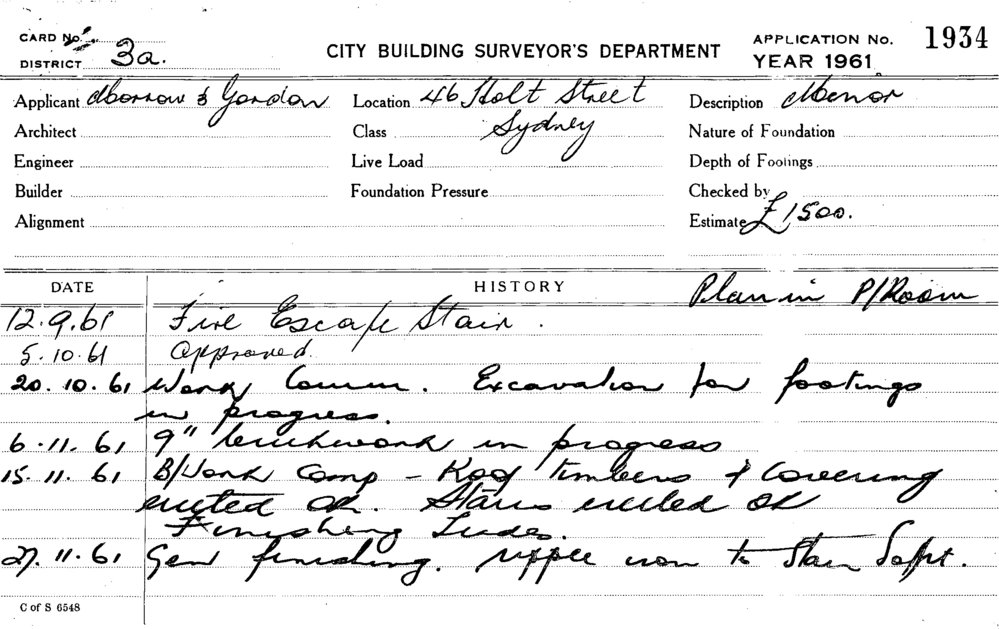 CARD No.
DISTRICT 3a.
CITY BUILDING SURVEYOR'S DEPARTMENT
APPLICATION No. 1934
YEAR 1961
Applicant Morrow & Gordon Location 46 Holt Street Description Menor
Architect Class Sydney Nature of Foundation
Engineer Live Load Depth of Footings
Builder Foundation Pressure Checked by
Alignment Estimate £1500.
DATE HISTORY Plan in P/Room
12.9.61 Fire Escape Stair.
5.10.61 Approved.
20.10.61 Work Comm. Excavation for footings
in progress.
6.11.61 9" brickwork in progress
15.11.61 B/Work Comp - Roof timbers & Covering
erected OK. Stairs erected OK
Finishing Trades.
27.11.61 Gen finishing. ripple iron to Stair Soffit.
C of S 6548